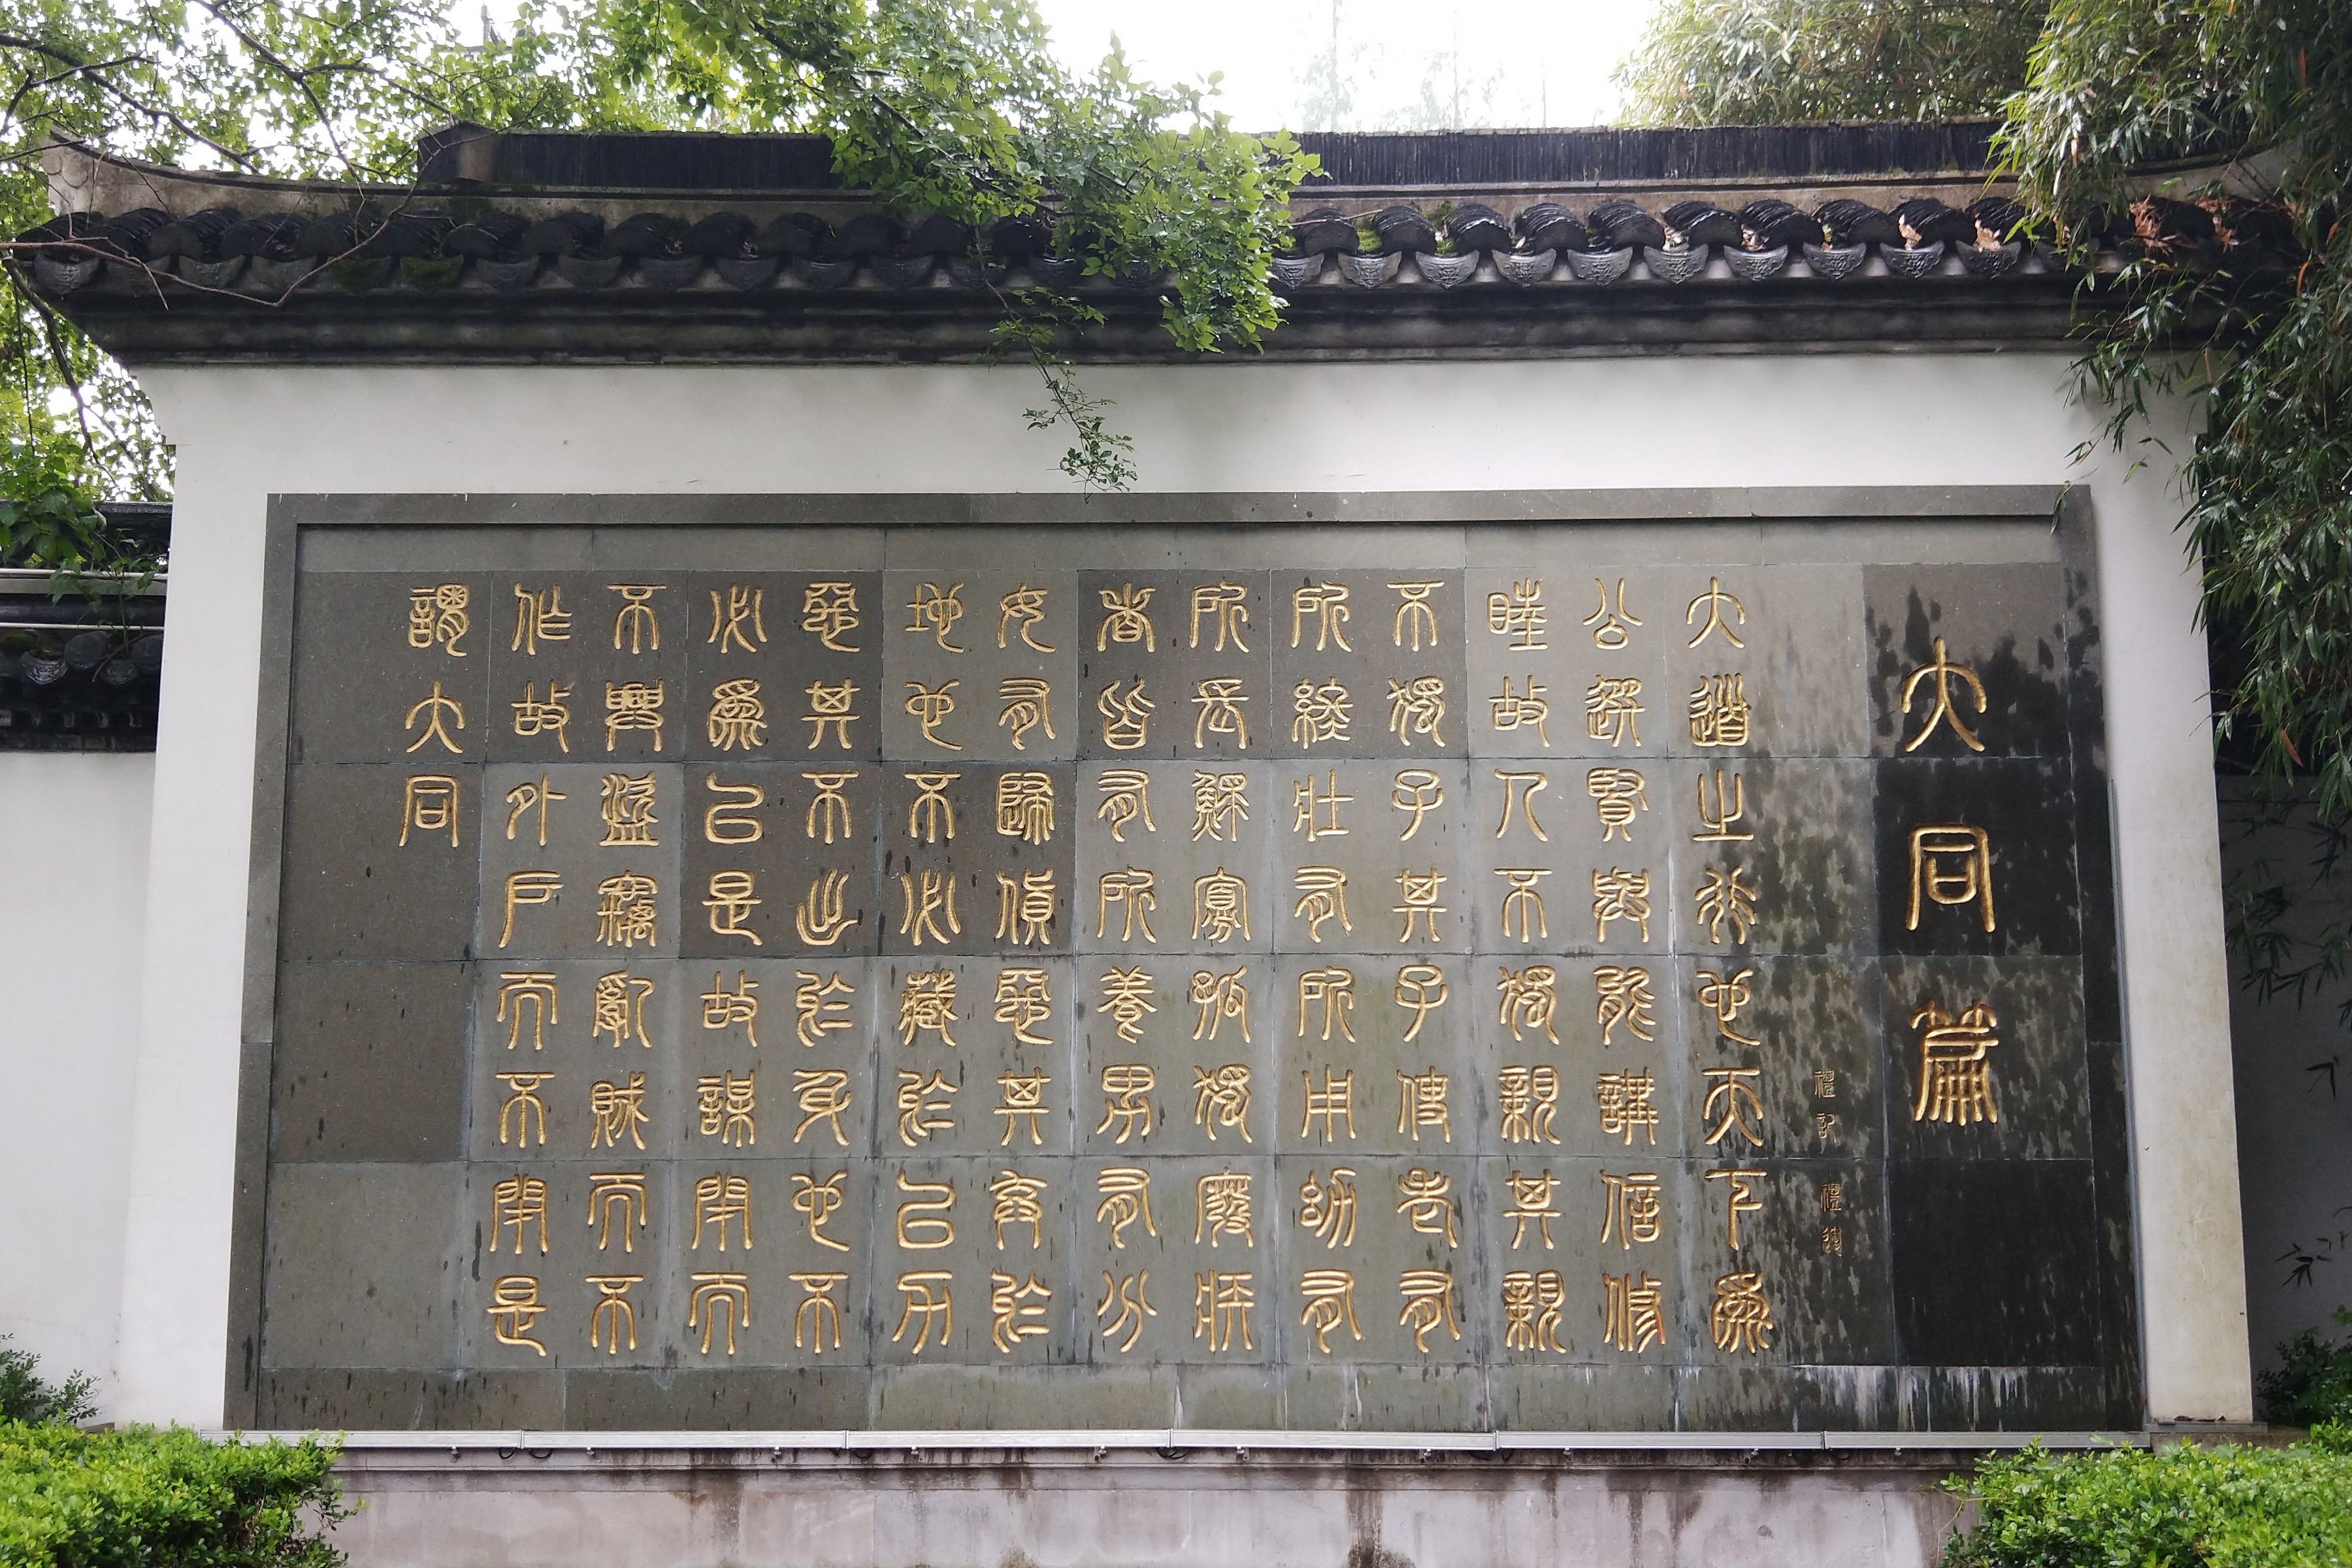 大同篇
禮記 禮運
大道之行也天下為
公選賢與能講信修
睦故人不獨親其親
不獨子其子使老有
所終壯有所用幼有
所長鰥寡孤獨廢疾
者皆有所養男有分
女有歸貨惡其棄於
地也不必藏於己力
惡其不出於身也不
必為己是故謀閉而
不興盜竊亂賊而不
作故外戶而不閉是
謂大同